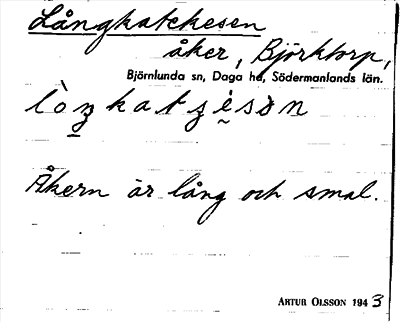 Långkatekesen
åker, Björktorp,
Björnlunda sn, Daga hd, Södermanlands län.
Åkern är lång och smal.
ARTUR OLSSON 1943